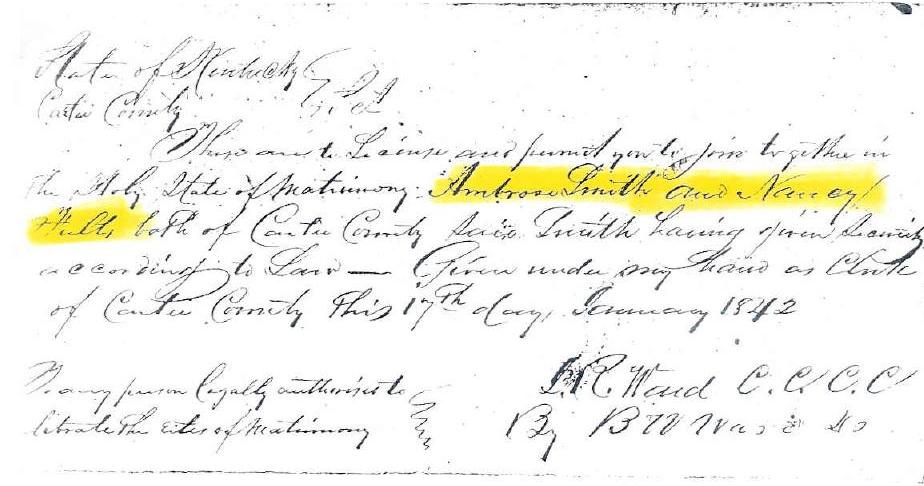 State of Kentucky
Carter County Sct
These are to License and permit you to join together in
the Holy State of Matrimony Ambrose Smith and Nancy
Fults both of Carter County Said Smith having given Security
according to Law — Given under my hand as Clerk
of Carter County this 17th day January 1842
To any person legally authorised to
librate the rites of Matrimony
Ward C. C. C. C
By B W Ward